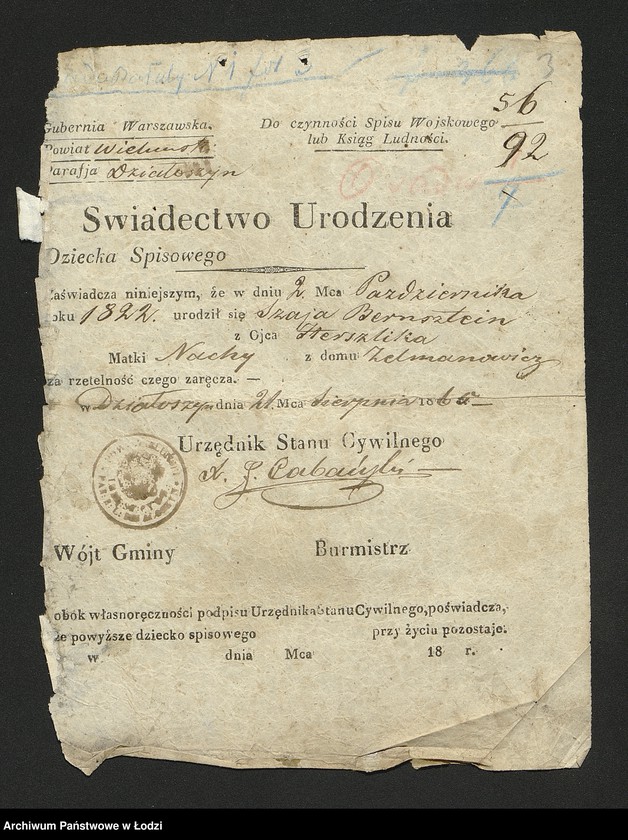 N 1 3
3
56
92
Gubernia Warszawska.
Powiat Wieluński
Parafja Działoszyn
Do czynności Spisu Wojskowego
lub Ksiąg Ludności.
Swiadectwo Urodzenia
Dziecka Spisowego
Zaświadcza niniejszym, że w dniu 2. Mca Pazdziernika
oku 1822. urodził się Szaja Bernsztein
z Ojca Herszlika
Matki Nachy z domu Zelmanowicz
za rzetelność czego zaręcza. —
w Działoszyn dnia 21. Mca Sierpnia
Urzędnik Stanu Cywilnego
Wójt Gminy Burmistrz
obok własnoręczności podpisu Urzędnika Stanu Cywilnego, poświadcza,
że powyższe dziecko spisowego przy życiu pozostaje.
w dnia Mca 18 r.
Archiwum Państwowe w Łodzi